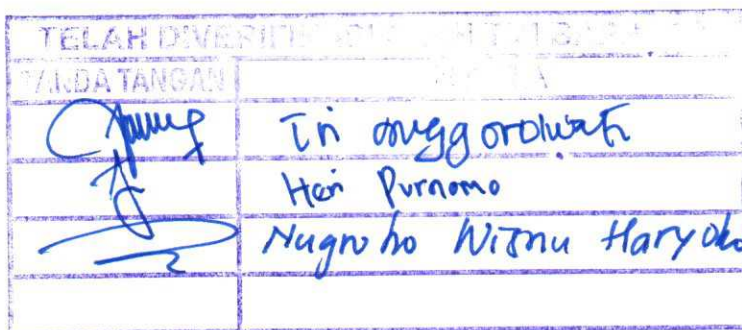 TELAH
TANDA TANGAN
Tri anggorowati
Heri Purnomo
Nugroho Wisnu Haryoko